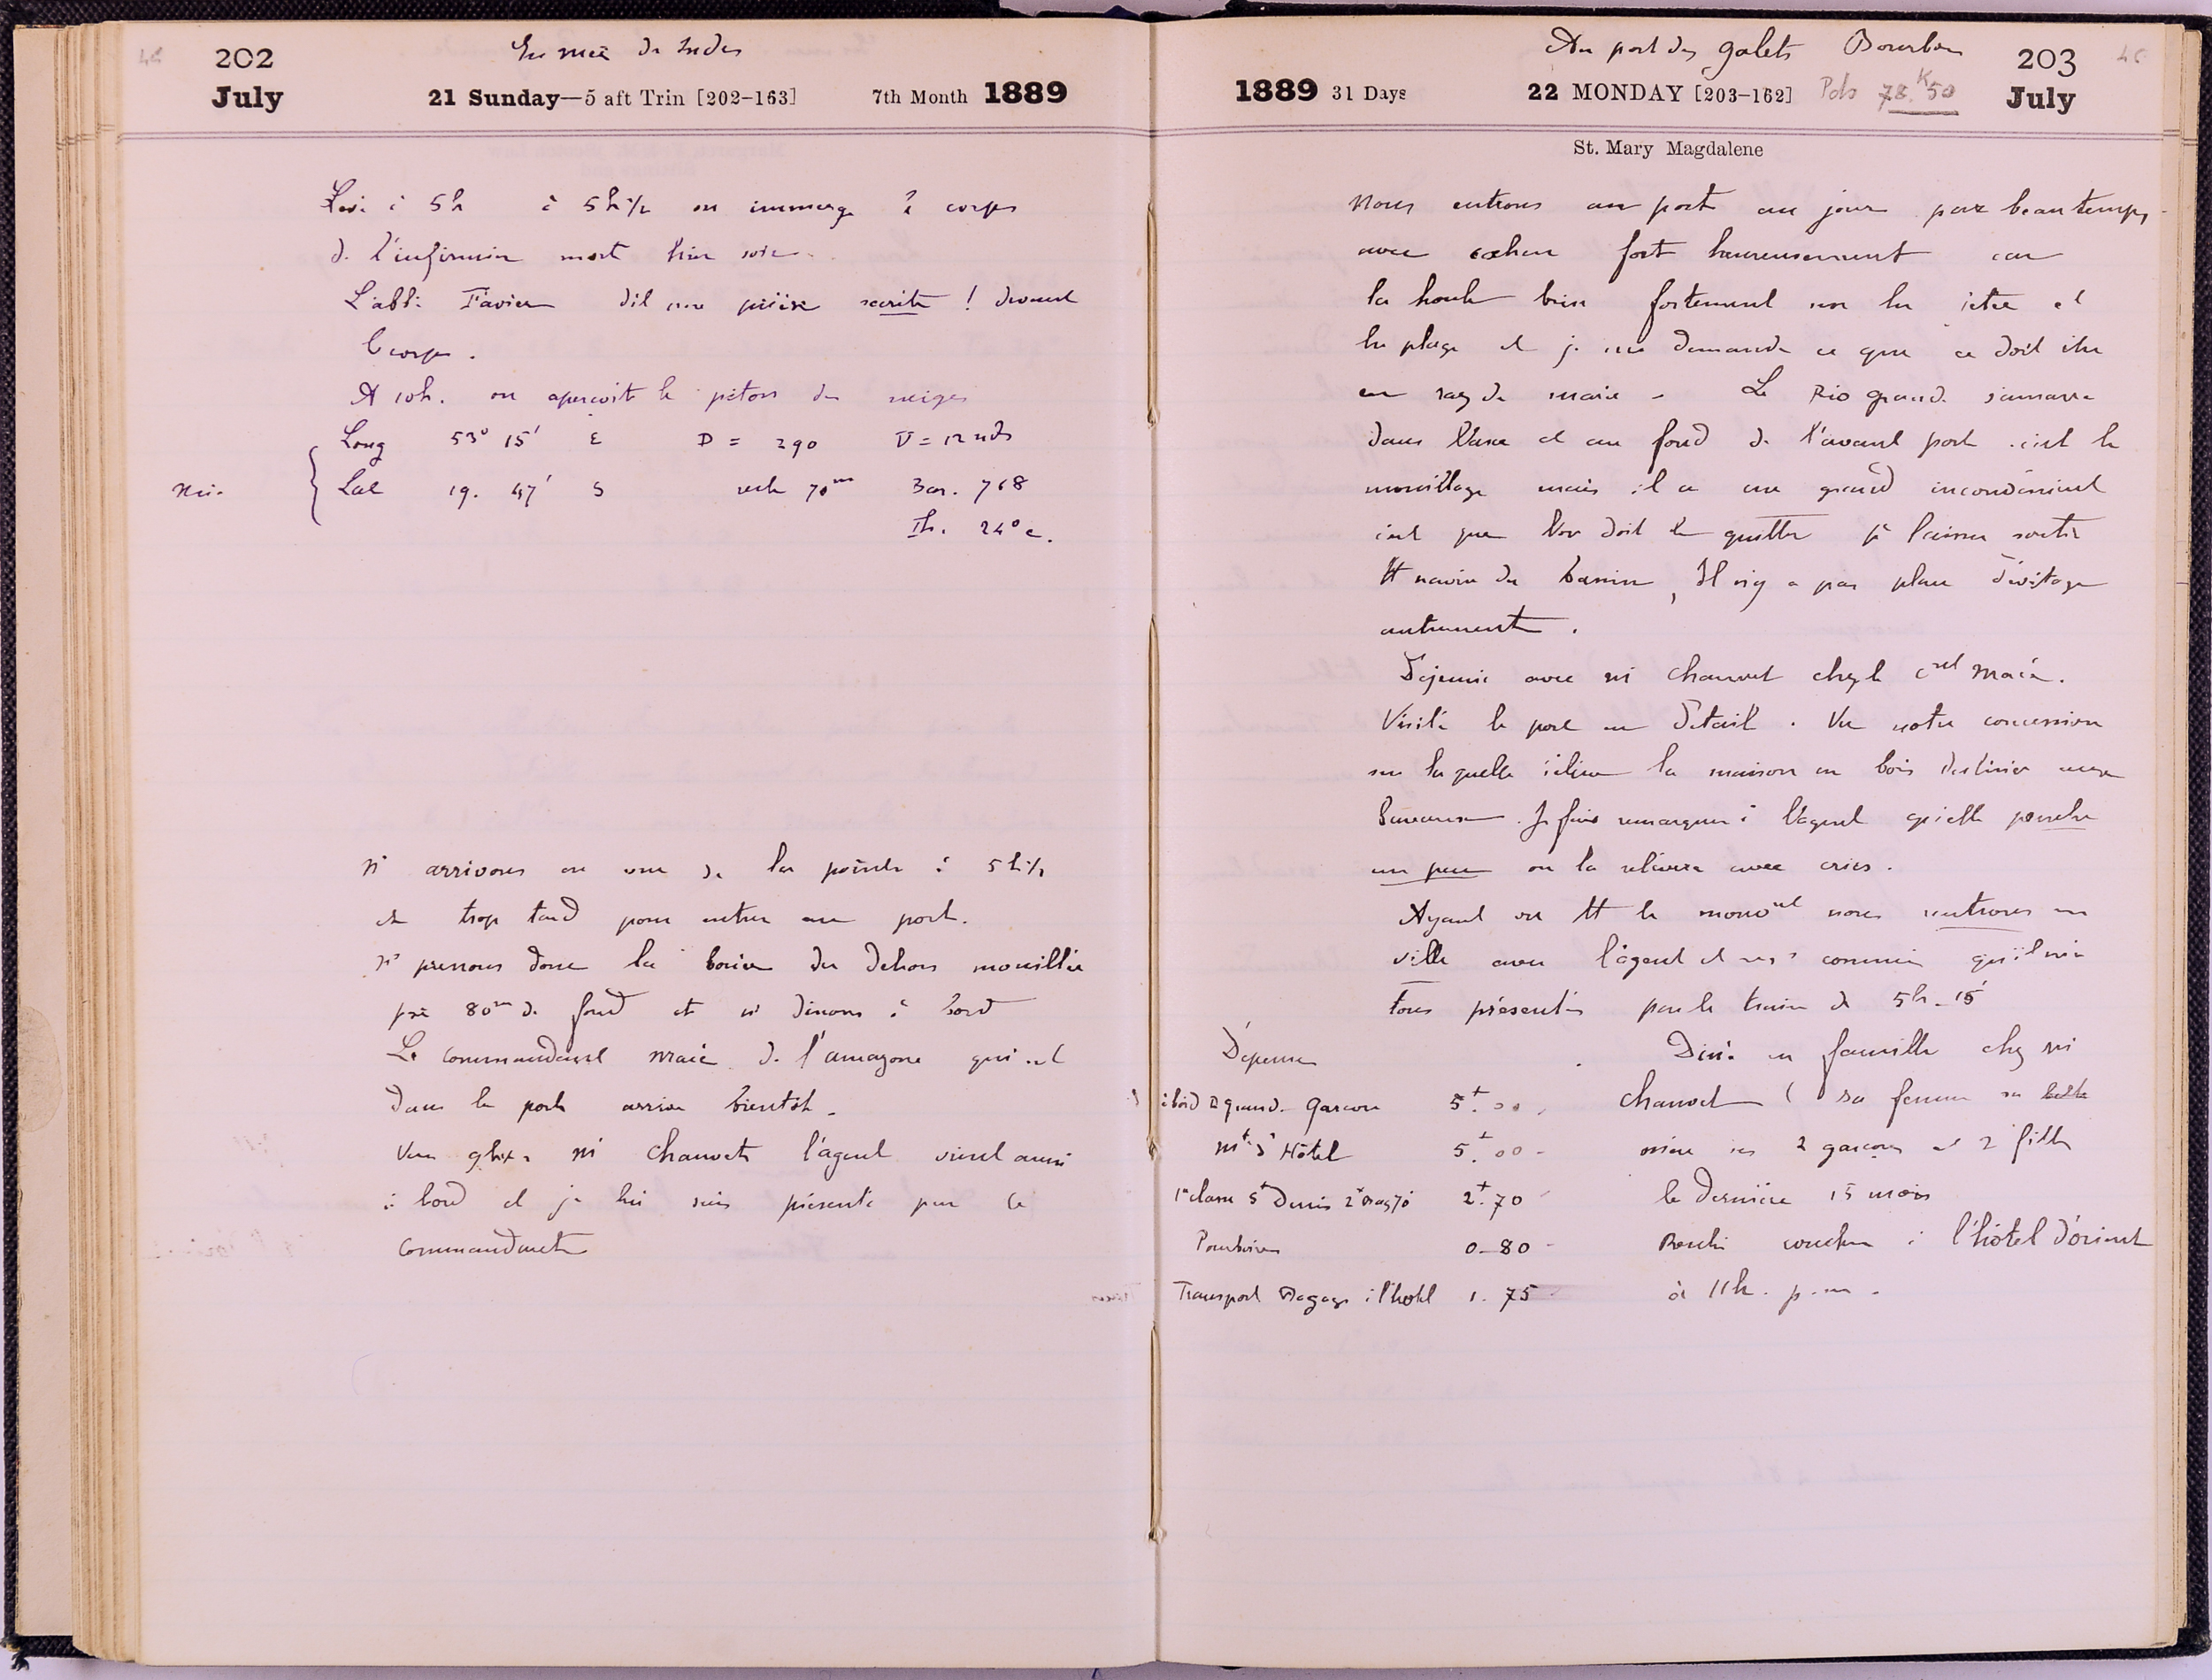 202
July
En mer des Indes
21 Sunday—5 aft Trin [202-163]
7th Month 1889
Levé à 5h à 5h ½ on immerge le corps
de l'infirmier mort hier soir.
L'abbé Favier dit une prière écrite ! devant
le corps.
A 10h. on aperçoit le piton des neiges
Long 53° 15' E D = 290 V = 12 nds
Midi Lat 19. 47' S 70 Bar. 768
Th. 24° c.
Ns arrivons en vue de la pointe à 5h ½
et trop tard pour entrer au port.
Ns prenons donc la bouée du dehors mouillée
par 80m de fond et ns dinons à bord
Le commandant Maié de l'amazone qui est
dans le port arrive bientôt.
Mr Chauvet l'agent vient aussi
à bord et je lui suis présenté par le
Commandant
Au port des galets Bourbon
203
July
1889 31 Days
22 MONDAY [203-162]
Pds 78.K50
St. Mary Magdalene
Nous entrons au port au jour par beau temps
avec fort heureusement car
la houle brise fortement sur la jetée et
la plage et je me demande ce que ce doit être
en raz de marée - Le Rio grande s'amarre
dans l'axe et au fond de l'avant port c'est le
mouillage mais il a un grand inconvénient
c'est que l'on doit le quitter pr laisser sortir
tt navire du bassin, Il n'y a pas place d'évitage
autrement.
Déjeuné avec Mr Chauvet chez le Maié.
Visité le port en détail. Vu notre concession
sur laquelle s'élève la maison en bois destinée aux
bureaux. Je fais remarquer à l'agent qu'elle penche
un peu on la relèvera avec crics.
Ayant vu tt le nous rentrons en
ville avec l'agent et ses commis qu'il m'a
tous présentés par le train de 5h-15
Dépenses
Diné en famille chez Mr
à bord grande Garçon 5+.00
Chauvet ( sa femme sa belle
mt d' Hôtel 5+.00
mère ses 2 garçons et 2 filles
1e classe St Denis 2+.70
la dernière 15 mois
Pourboires 0-80
Rentré coucher à l'hôtel d'orient
Transport Bagage à l'hotel 1.75
à 11h. p.m.